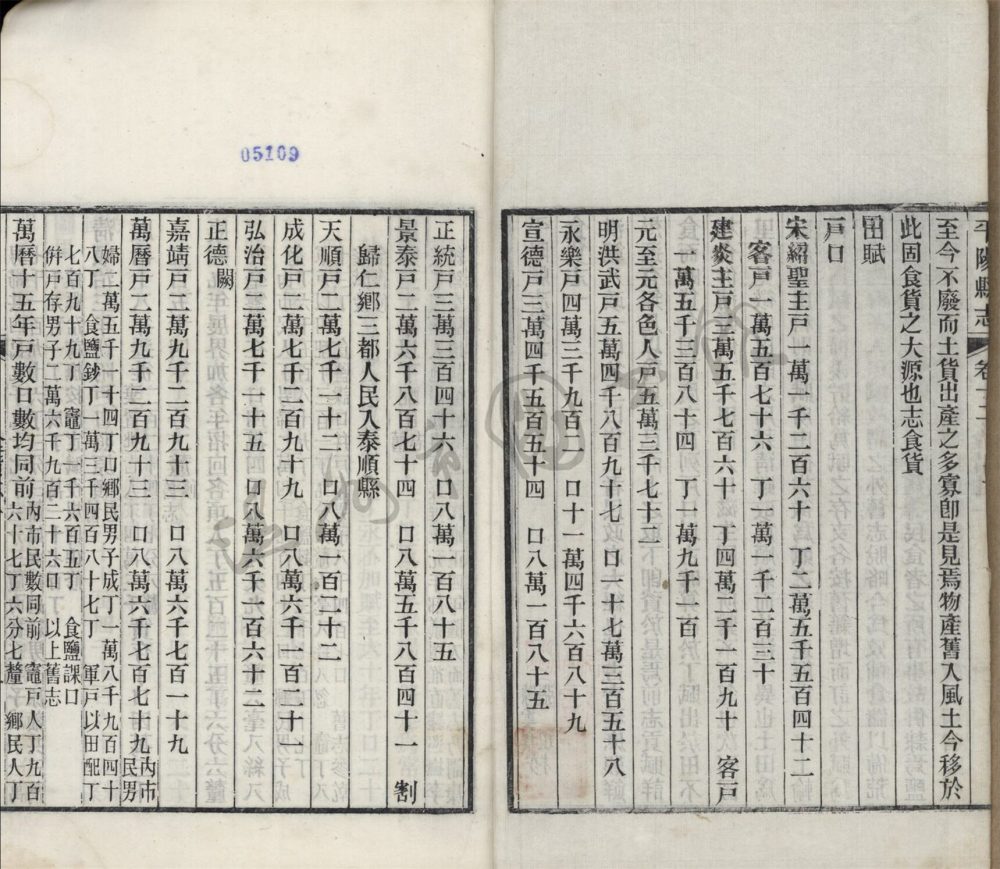 平陽縣志 卷十二
至今不廢而土貨出產之多寡卽是見焉物產舊入風土今移於
此固食貨之大源也志食貨
田賦
戶口
宋紹聖主戶一萬一千二百六十 丁二萬五千五百四十二
客戶一萬五百七十六 丁一萬一千二百三十
建炎主戶三萬五千七百六十 丁四萬二千一百九十 客戶
一萬五千三百八十四 丁一萬九千一百
元至元各色人戶五萬三千七十二
明洪武戶五萬四千八百九十七 口一十七萬三百五十八
永樂戶四萬三千九百二 口十一萬四千六百八十九
宣德戶三萬四千五百五十四 口八萬一百八十五
05109
正統戶三萬三百四十六 口八萬一百八十五
景泰戶二萬六千八百七十四 口八萬五千八百四十一 割
歸仁鄉三都人民入泰順縣
天順戶二萬七千一十二 口八萬一百二十二
成化戶二萬七千二百九十九 口八萬六千一百二十一
弘治戶二萬七千一十五 口八萬六千一百六十二
正德闕
嘉靖戶五萬九千二百九十三 口八萬六千七百一十九
萬曆戶二萬九千二百九十三 口八萬六千七百七十九內市民男
婦二萬五千一十四丁口鄉民男子成丁一萬八千九百四十
八丁 食鹽鈔丁一萬三千四百八十七丁 軍戶以田配丁
七百九十九丁 竈丁一千六百五丁 食鹽課口
倂戶存男子二萬六千九百二十六口 以上舊志
萬曆十五年戶數口數均同前內市民數同前 竈戶人丁九百
六十七丁六分七釐 鄉民人丁